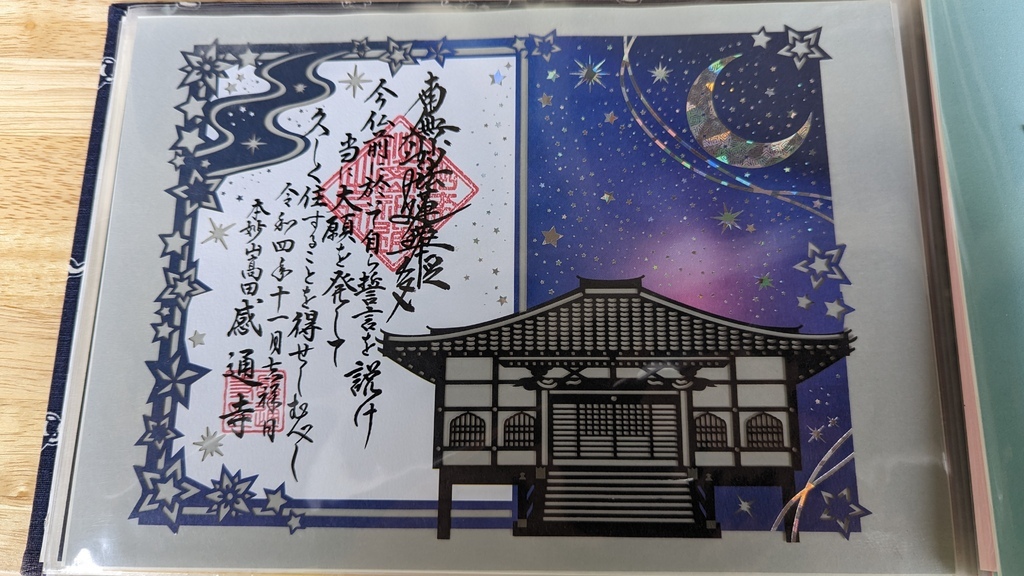 南無妙法蓮華経
今仏前於て自ら誓言を説け
当に大願を発して
久しく住することを得せしむべし
令和四年十一月吉祥日
本妙山高田感通寺